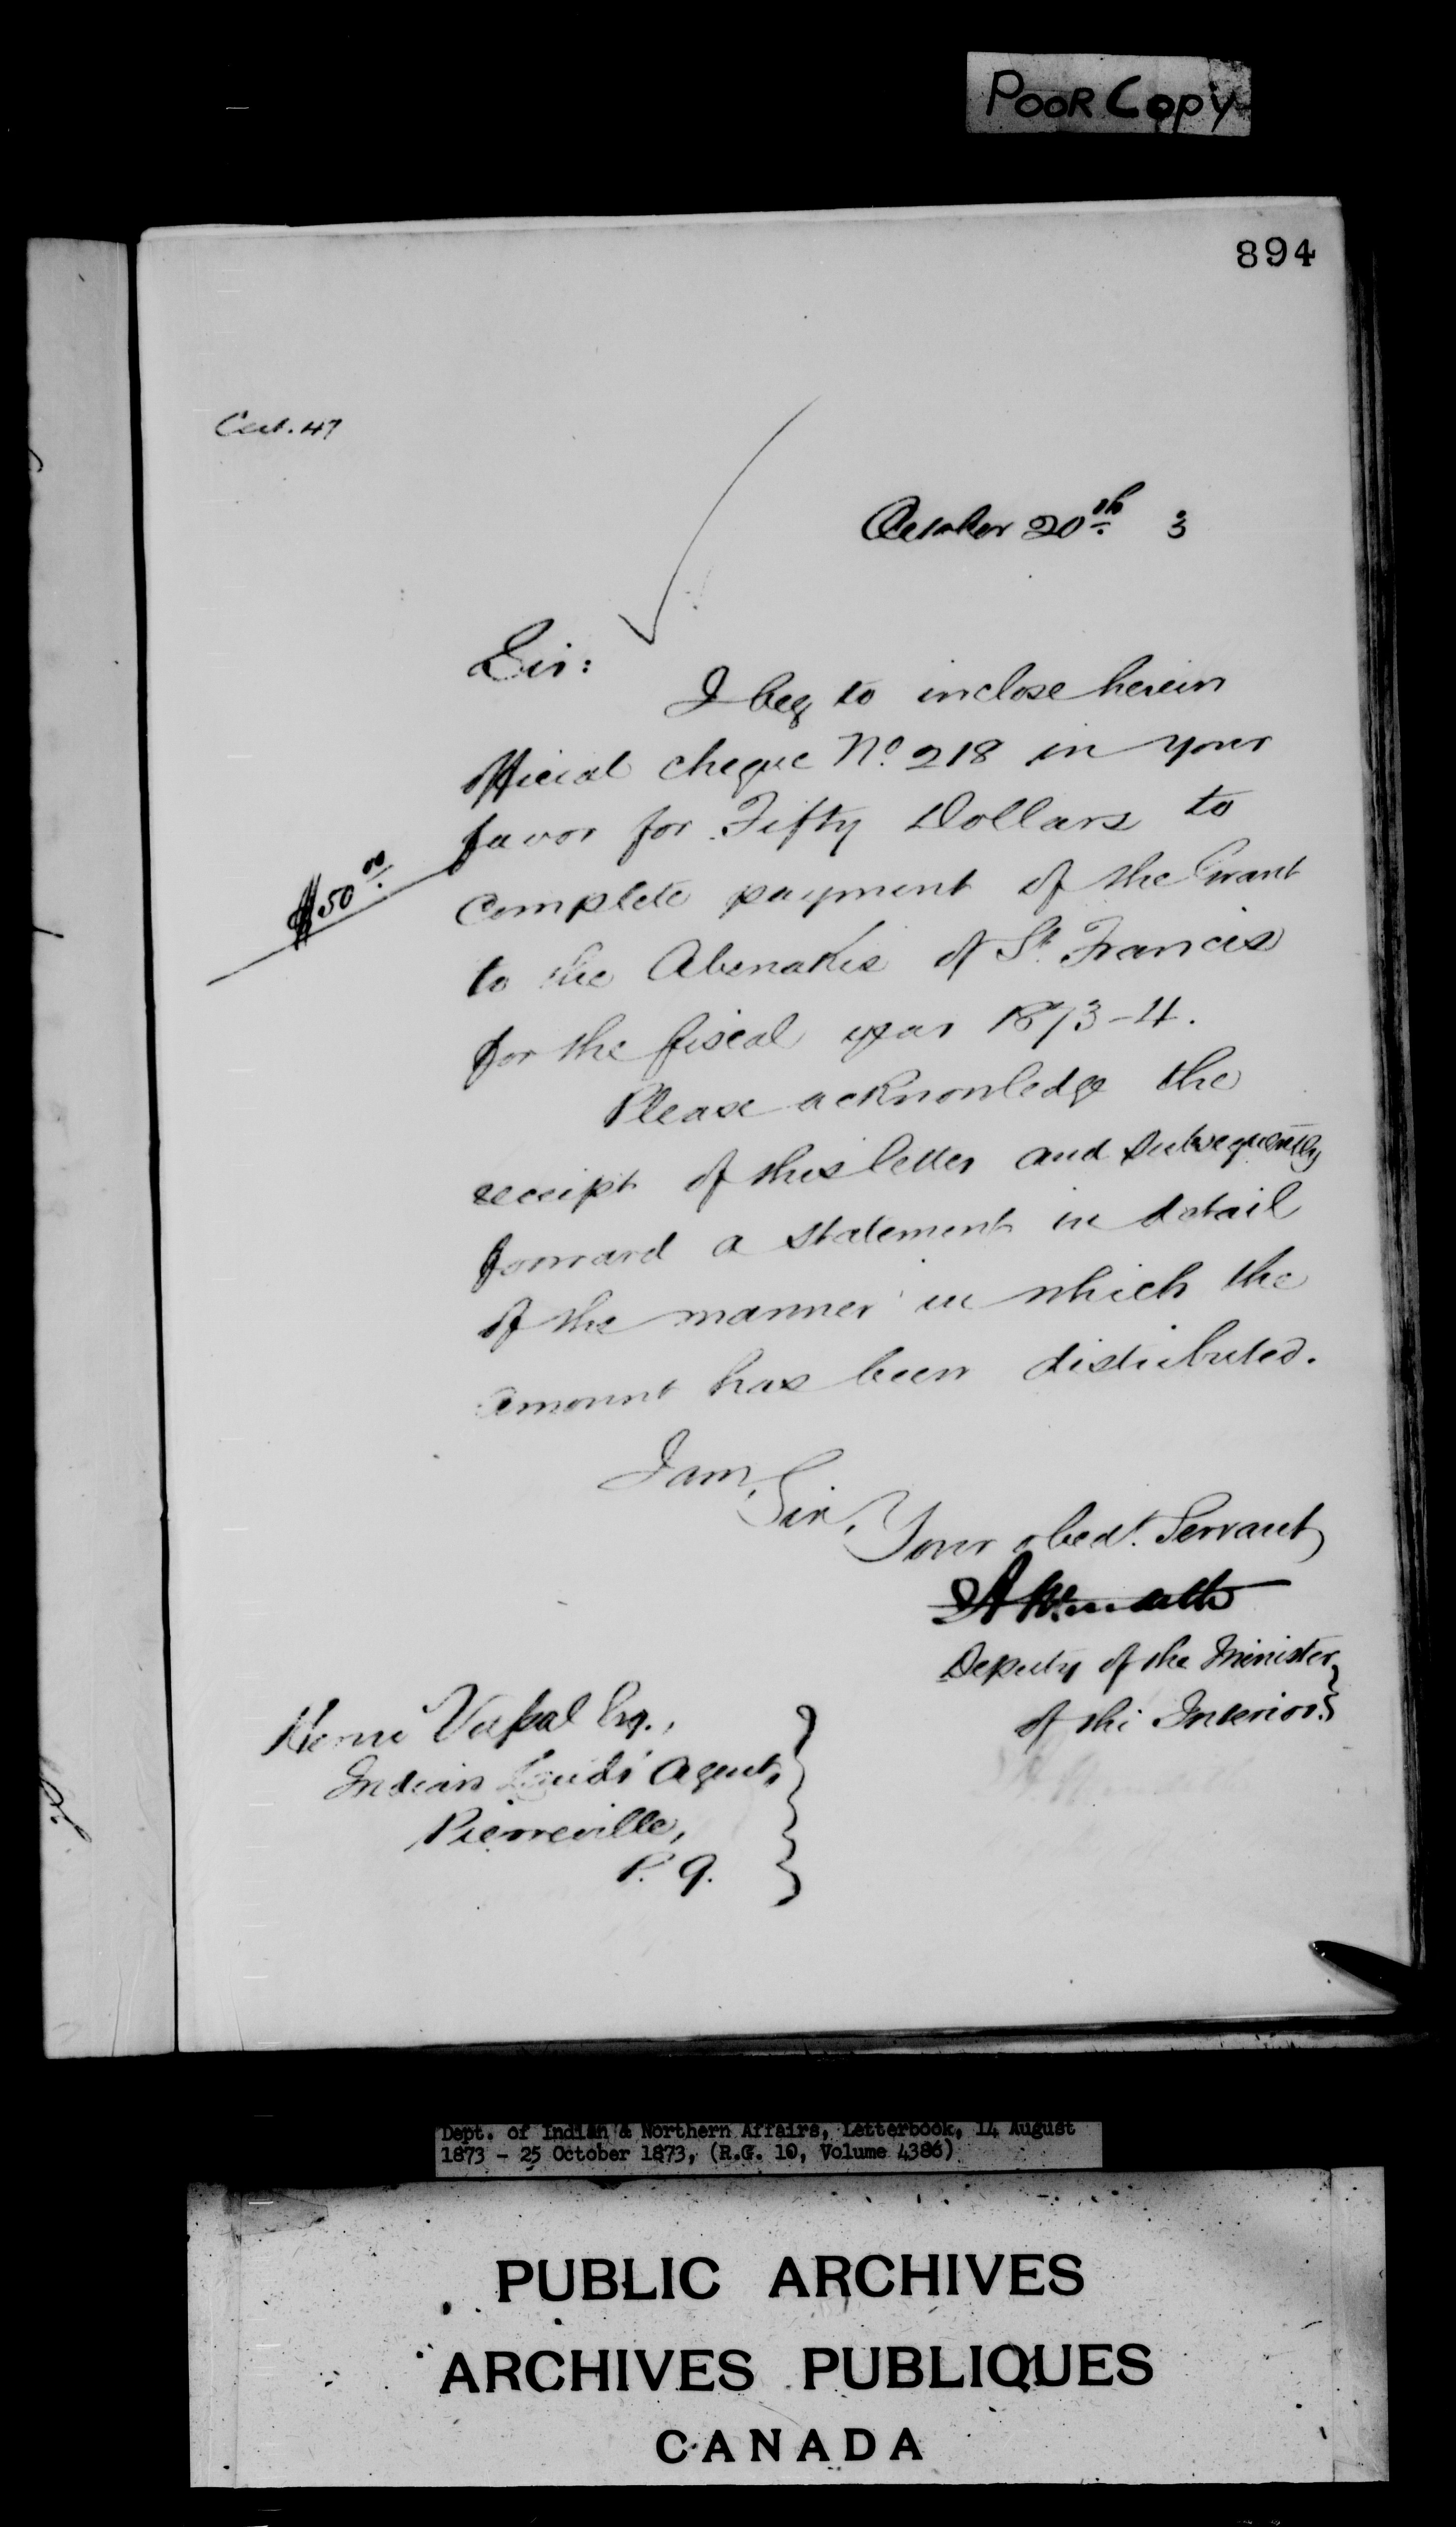 POOR Copy
894
Cert. 47
October 20th 3
Sir:
I beg to inclose herein
official cheque No. 218 in your
favor for Fifty Dollars to
$50.00
complete payment of the Grant
to the Abenakis of St. Francis
for the fiscal year 1873-4.
Please acknowledge the
receipt of this letter and subsequently
forward a statement in detail
of the manner in which the
amount has been distributed.
I am,
Sir,
Your obedt. Servant
Deputy of the Minister
of the Interior.
Henri Vassal Esq.,
Indian Lands Agent,
Pierreville,
P. Q.
Dept. of Indian & Northern Affairs, Letterbook, 14 August
1873 - 25 October 1873, (R.G. 10, Volume 4386)
PUBLIC ARCHIVES
ARCHIVES PUBLIQUES
CANADA